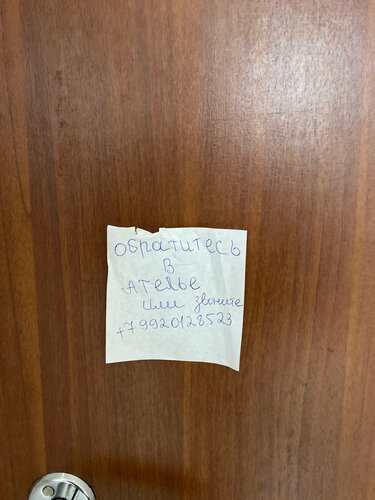 Обратитесь
в
Ателье
или звоните
+79920128523